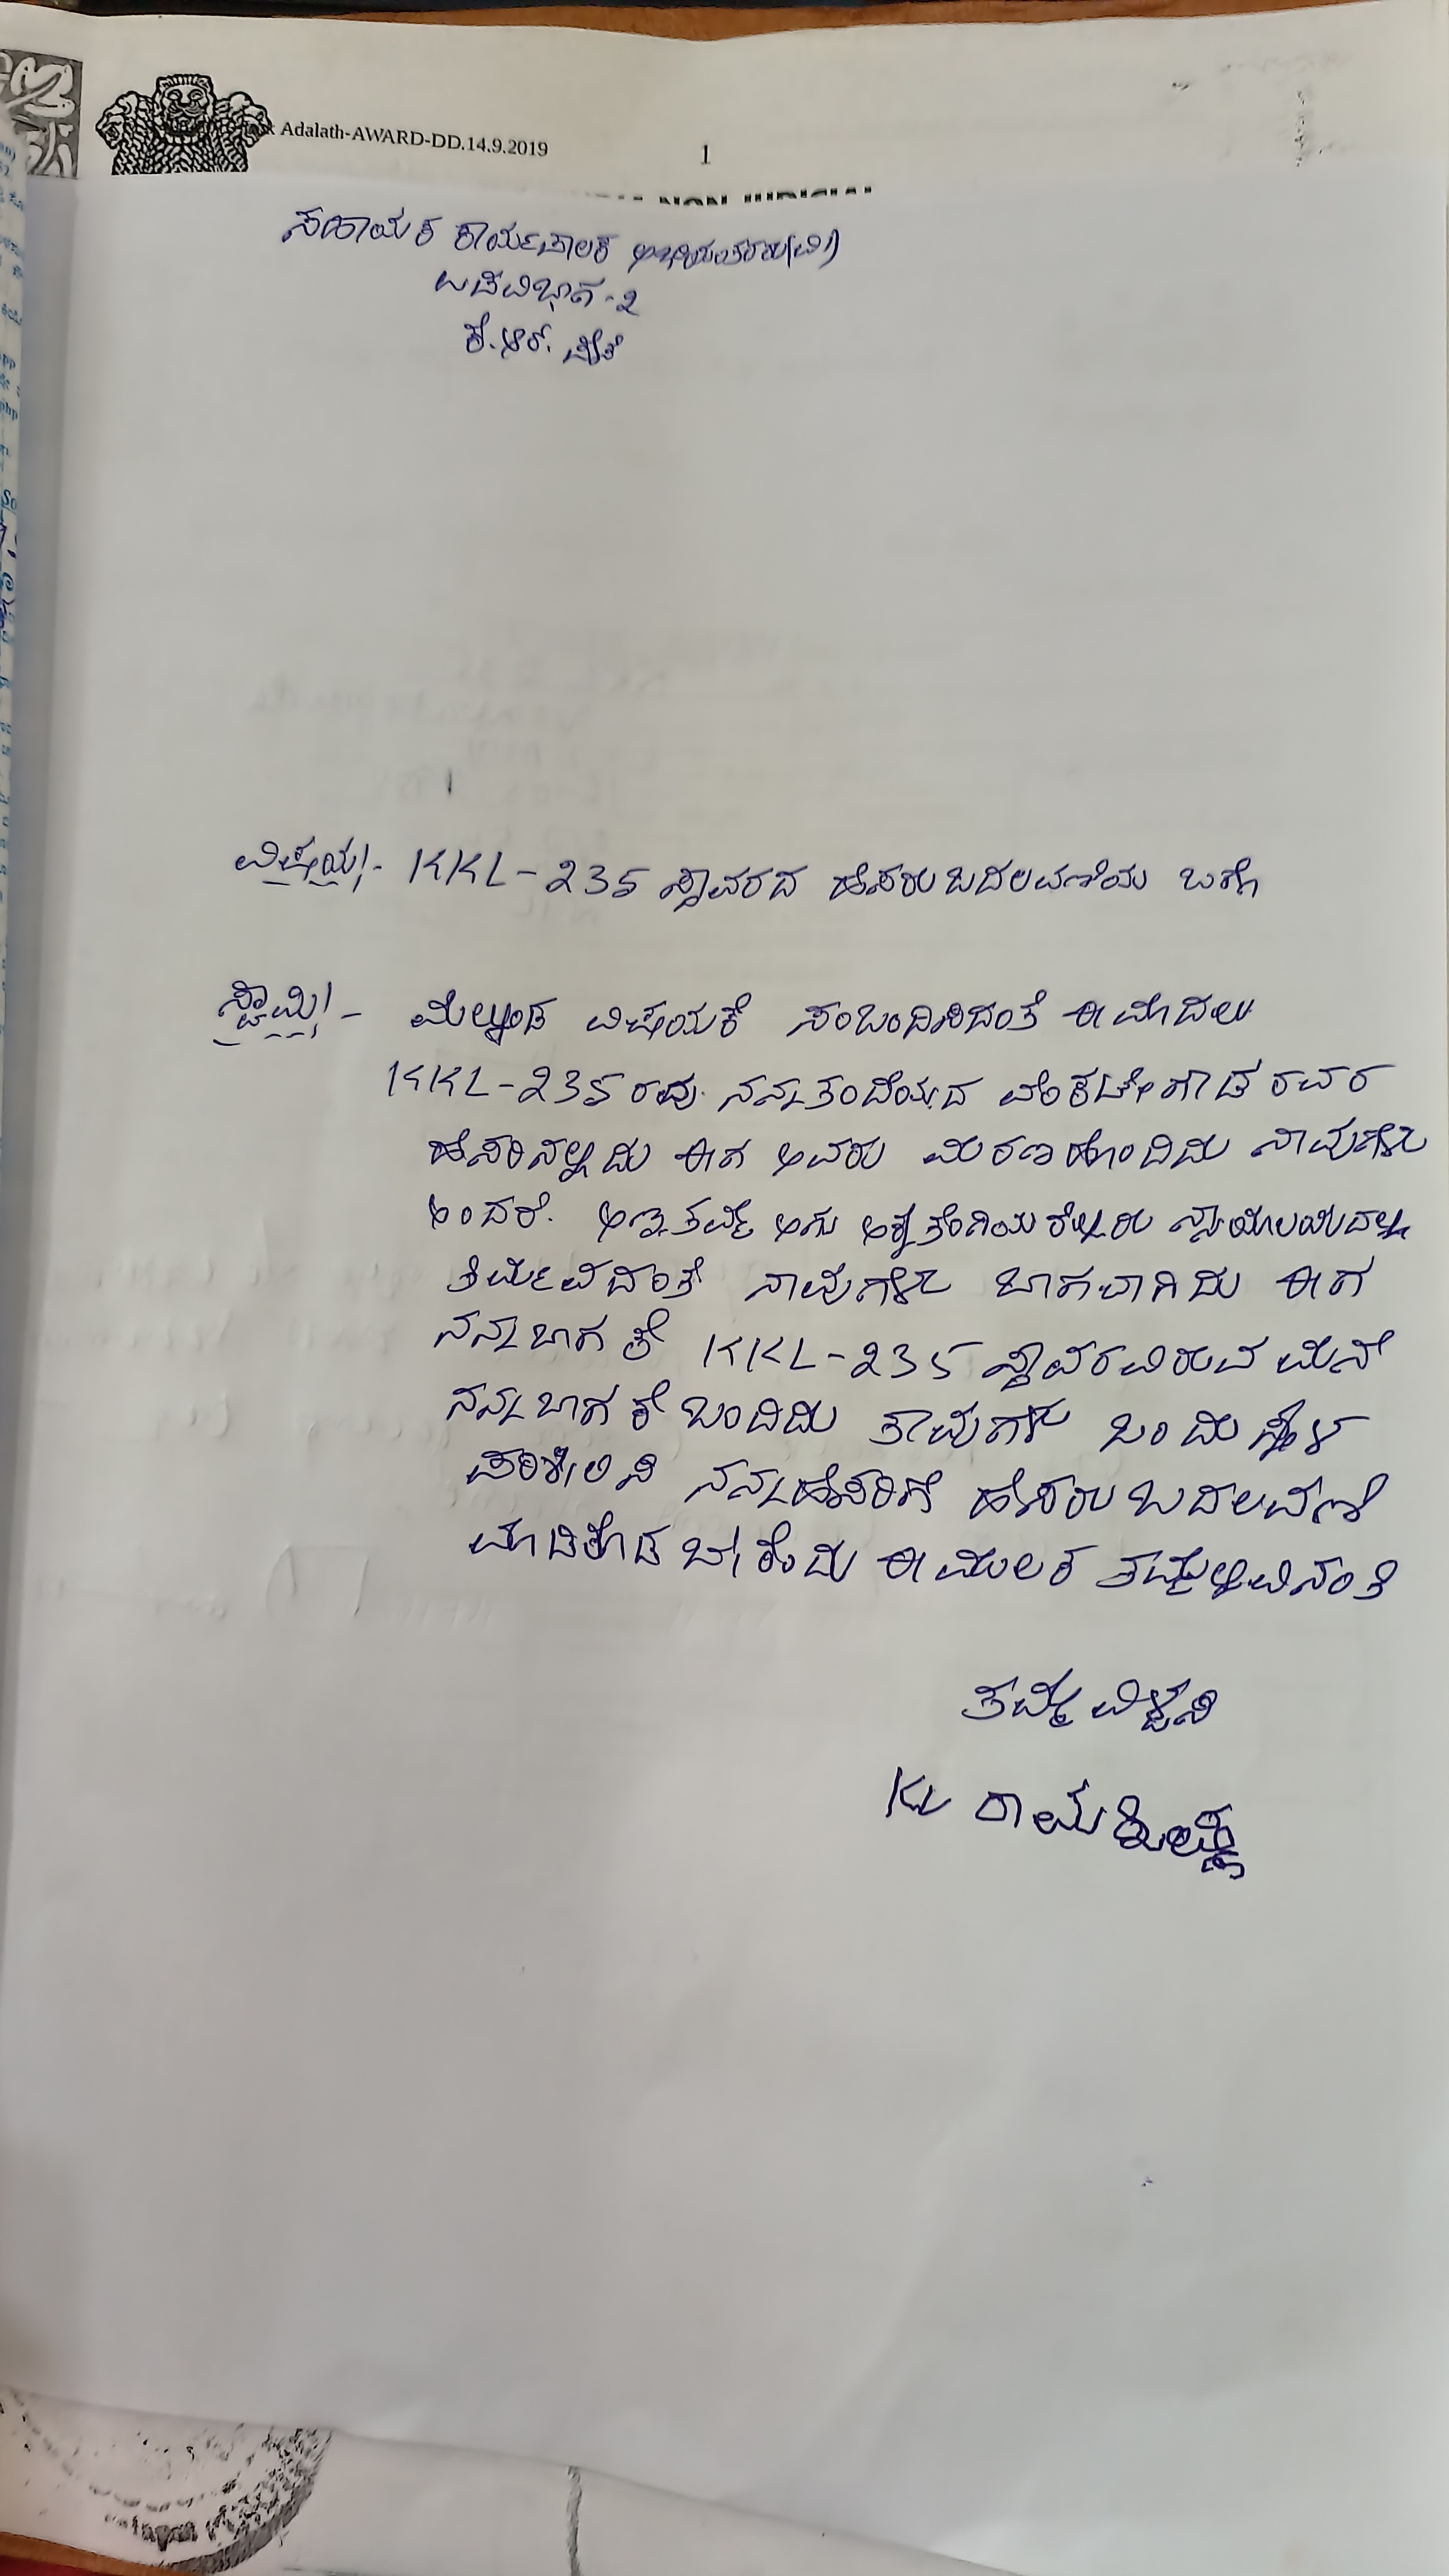 Adalath-AWARD-DD.14.9.2019
1
NON JUDICIAL
ಸಹಾಯಕ ಕಾರ್ಯಪಾಲಕ ಅಭಿಯಂತರರು(ವಿ)
ಉಪವಿಭಾಗ-2
ಕೆ.ಆರ್. ಪೇಟೆ
ವಿಷಯ:- KKL-235 ಸ್ತಾವರದ ಹೆಸರು ಬದಲವಣೆಯ ಬಗೆ
ಸ್ವಾಮಿ:- ಮೆಲ್ಕಂಡ ವಿಷಯಕೆ ಸಂಬಂದಿಸಿದಂತೆ ಈ ಮೊದಲು
KKL-235 ರವು ನನ್ನ ತಂದೆಯದ ವೆಂಕಟೇಗೌಡ ರವರ
ಹೆಸರಿನಲ್ಲಿದು ಈಗ ಅವರು ಮರಣ ಹೊಂದಿದು ನಾವುಗಳು
ಅಂದರೆ. ಅಣ್ಣ ತಮ್ಮ ಅಗು ಅಕ್ಕ ತಂಗಿಯರೆಲ್ಲರು ನ್ಯಾಯಾಲಯದಲ್ಲಿ
ತಿರ್ಮನವದಂತೆ ನಾವುಗಳು ಬಾಗವಾಗಿದು ಈಗ
ನನ್ನ ಬಾಗಕೆ KKL-235 ಸ್ತಾವರವಿರುವ ಮನೆ
ನನ್ನ ಬಾಗಕೆ ಬಂದಿದು ತಾವುಗಳು ಬಂದು ಸ್ಥಳ
ಪರಿಶೀಲಿಸಿ ನನ್ನ ಹೆಸರಿಗೆ ಹೆಸರು ಬದಲವಣೆ
ಮಾಡಿಕೊಡಬೇಕೆಂದು ಈ ಮೂಲಕ ತಮ್ಮಲ್ಲಿ ವಿನಂತಿ
ತಮ್ಮ ವಿಶ್ವಸಿ
KV ರಾಮಕೃಷ್ಣ